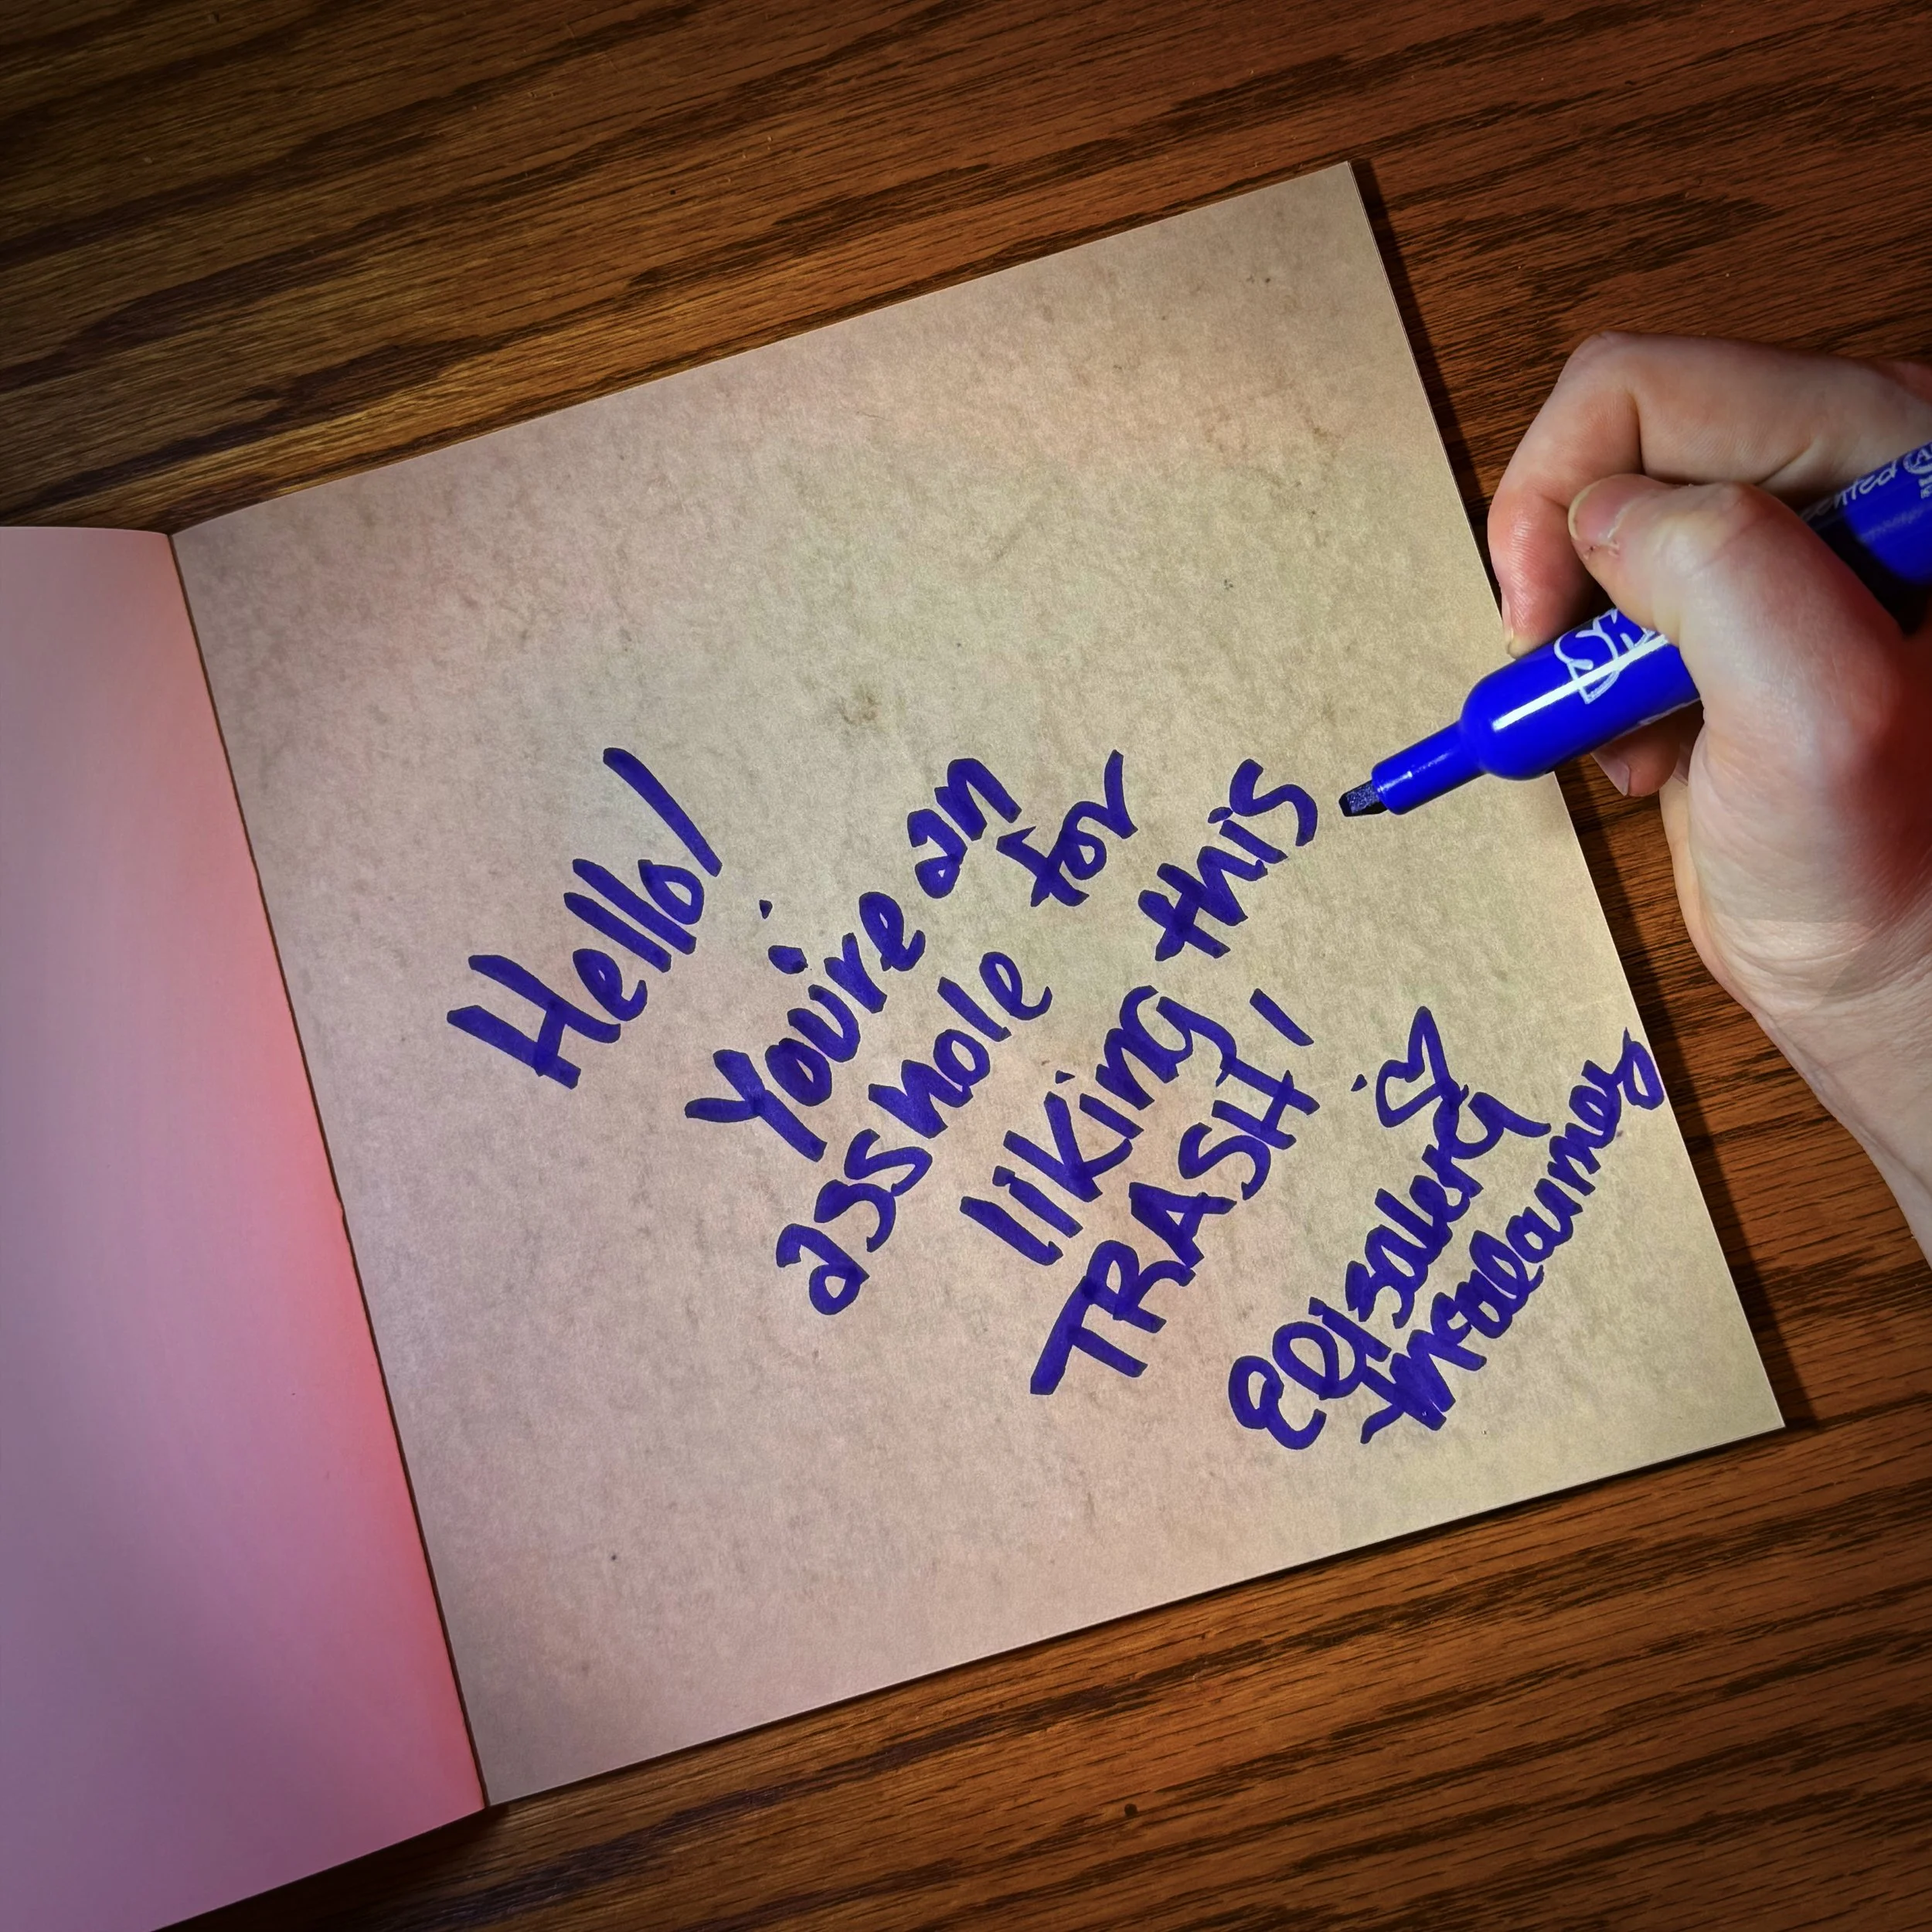 Hello!
You're an
asshole for
liking this
TRASH!